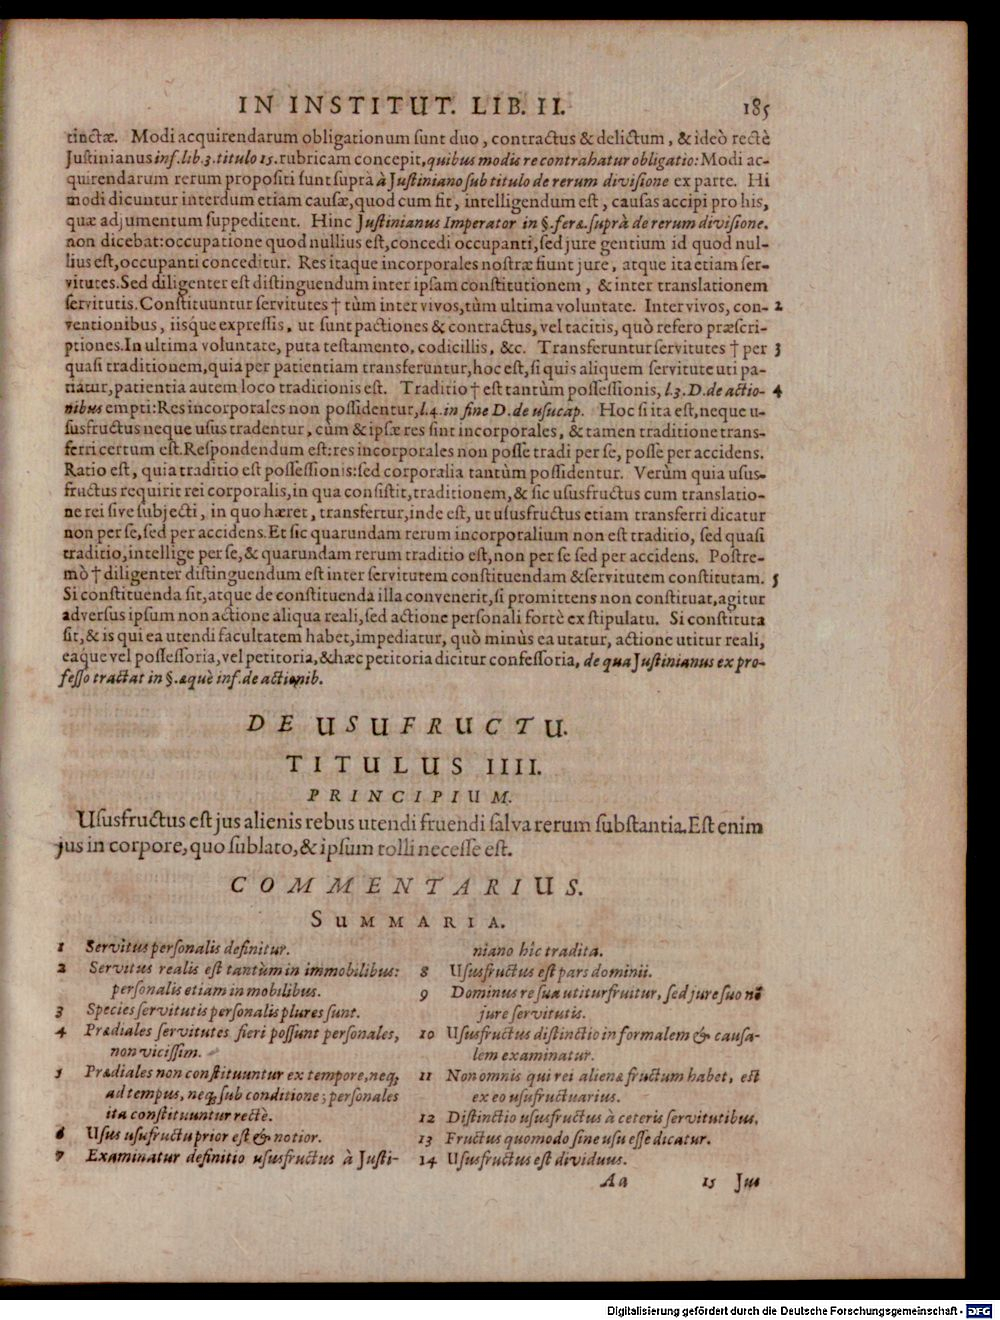 IN INSTITUT. LIB. II. 185
tinctæ. Modi acquirendarum obligationum sunt duo, contractus & delictum, & ideò rectè
Justinianus inf. lib. 3. titulo 15. rubricam concepit, quibus modis re contrahatur obligatio: Modi ac-
quirendarum rerum propositi sunt suprà à Justiniano sub titulo de rerum divisione ex parte. Hi
modi dicuntur interdum etiam causæ, quod cum fit, intelligendum est, causas accipi pro his,
quæ adjumentum suppeditent. Hinc Justinianus Imperator in §. feræ. suprà de rerum divisione.
non dicebat: occupatione quod nullius est, concedi occupanti, sed jure gentium id quod nul-
lius est, occupanti conceditur. Res itaque incorporales nostræ fiunt jure, atque ita etiam ser-
vitutes. Sed diligenter est distinguendum inter ipsam constitutionem, & inter translationem
servitutis. Constituuntur servitutes † tùm inter vivos, tùm ultima voluntate. Inter vivos, con- 2
ventionibus, iisque expressis, ut sunt pactiones & contractus, vel tacitis, quò refero præscri-
ptiones. In ultima voluntate, puta testamento, codicillis, &c. Transferuntur servitutes † per 3
quasi traditionem, quia per patientiam transferuntur, hoc est, si quis aliquem servitute uti pa-
tiatur, patientia autem loco traditionis est. Traditio † est tantùm possessionis, l. 3. D. de actio- 4
nibus empti: Res incorporales non possidentur, l. 4. in fine D. de usucap. Hoc si ita est, neque u-
susfructus neque usus tradentur, cùm & ipsæ res sint incorporales, & tamen traditione trans-
ferri certum est. Respondendum est: res incorporales non posse tradi per se, posse per accidens.
Ratio est, quia traditio est possessionis: sed corporalia tantùm possidentur. Verùm quia usus-
fructus requirit rei corporalis, in qua consistit, traditionem, & sic ususfructus cum translatio-
ne rei sive subjecti, in quo hæret, transfertur, inde est, ut ususfructus etiam transferri dicatur
non per se, sed per accidens. Et sic quarundam rerum incorporalium non est traditio, sed quasi
traditio, intellige per se, & quarundam rerum traditio est, non per se sed per accidens. Postre-
mò † diligenter distinguendum est inter servitutem constituendam & servitutem constitutam. 5
Si constituenda sit, atque de constituenda illa convenerit, si promittens non constituat, agitur
adversus ipsum non actione aliqua reali, sed actione personali fortè ex stipulatu. Si constituta
sit, & is qui ea utendi facultatem habet, impediatur, quò minùs ea utatur, actione utitur reali,
eaque vel possessoria, vel petitoria, & hæc petitoria dicitur confessoria, de qua Justinianus ex pro-
fesso tractat in §. æquè inf. de actionib.
DE USUFRUCTU.
TITULUS IIII.
PRINCIPIUM.
Ususfructus est jus alienis rebus utendi fruendi salva rerum substantia. Est enim
jus in corpore, quo sublato, & ipsum tolli necesse est.
COMMENTARIUS.
SUMMARIA.
1 Servitus personalis definitur.
2 Servitus realis est tantùm in immobilibus:
personalis etiam in mobilibus.
3 Species servitutis personalis plures sunt.
4 Prædiales servitutes fieri possunt personales,
non vicissim.
5 Prædiales non constituuntur ex tempore, neq;
ad tempus, neq; sub conditione; personales
ita constituuntur rectè.
6 Usus usufructu prior est & notior.
7 Examinatur definitio ususfructus à Justi-
niano hîc tradita.
8 Ususfructus est pars dominii.
9 Dominus re sua utitur fruitur, sed jure suo nō
jure servitutis.
10 Ususfructus distinctio in formalem & causa-
lem examinatur.
11 Non omnis qui rei alienæ fructum habet, est
ex eo usufructuarius.
12 Distinctio ususfructus à ceteris servitutibus.
13 Fructus quomodo sine usu esse dicatur.
14 Ususfructus est dividuus.
Aa 15 Jus
Digitalisierung gefördert durch die Deutsche Forschungsgemeinschaft - DFG